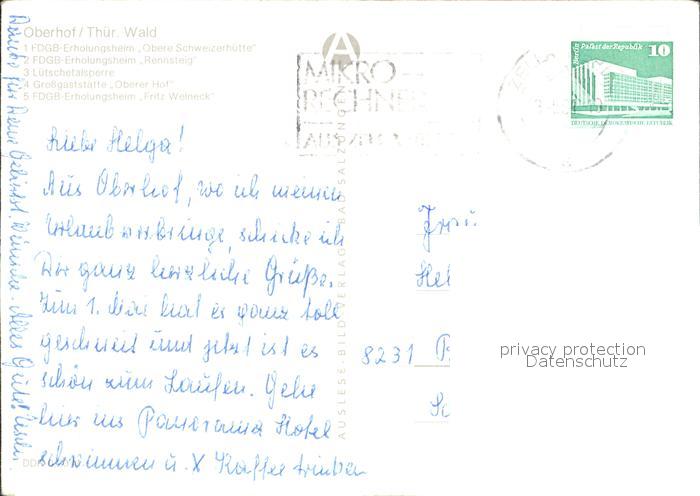 Oberhof / Thür. Wald
1 FDGB-Erholungsheim „Obere Schweizerhütte"
2 FDGB-Erholungsheim „Rennsteig"
3 Lütschetalsperre
4 Großgaststätte „Oberer Hof"
5 FDGB-Erholungsheim „Fritz Weineck"
MIKRO-
RECHNE
Berlin Palast der Republik
10
DEUTSCHE DEMOKRATISCHE REPUBLIK
Liebe Helga!
Aus Oberhof, wo ich meinen
Urlaub verbringe, schicke ich
Dir ganz herzliche Grüße.
Zum 1. Mai hat es ganz toll
geschneit und jetzt ist es
schön zum Laufen. Gehe
hier ins Panorama Hotel
schwimmen u. X Kaffee trinken
Danke für Deine Geburtst. Wünsche. Alles Gute!
AUSLESE-BILD-VERLAG BAD SALZUNGEN
Frau
Hel
8231
privacy protection
Datenschutz